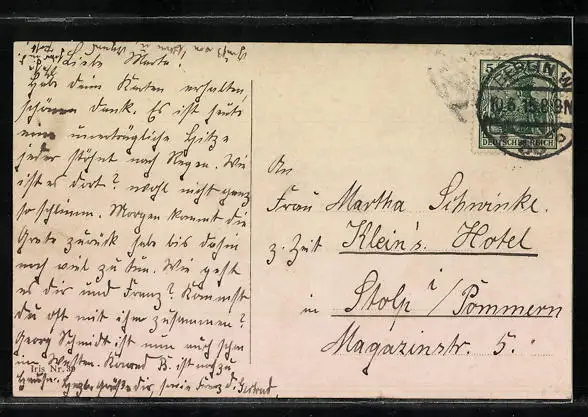 Liebe Marta!
Hab Dein Karten erhalten,
schönen Dank. Es ist heute
eine unerträgliche Hitze
jeder stöhnt nach Regen. Wie
ist es dort? wohl nicht ganz
so schlimm. Morgen kommt die
Grete zurück habe bis dahin
noch viel zu tun. Wie geht
es dir und Franz? Kommst
du oft mit ihm zusammen?
Georg Schmidt ist nun auch schon
im Westen. Konrad B. ist noch zu
Hause. Herzl. Grüße dir, sowie Franz d. Gertrud
Iris Nr. 39
BERLIN W
10.6.15.8-9N
5
DEUTSCHES REICH
An
Frau Martha Schwinke.
z. Zeit Klein's Hotel
in Stolp i/Pommern
Magazinstr. 5.